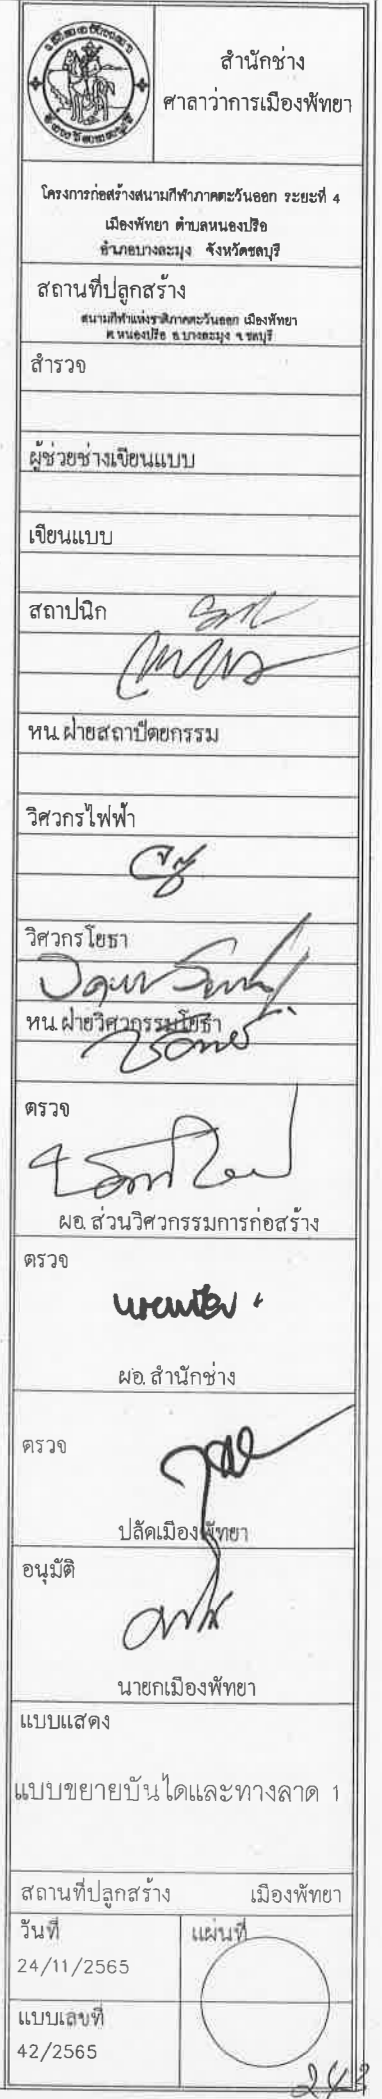 สำนักช่าง
ศาลาว่าการเมืองพัทยา
โครงการก่อสร้างสนามกีฬาภาคตะวันออก ระยะที่ 4
เมืองพัทยา ตำบลหนองปรือ
อำเภอบางละมุง จังหวัดชลบุรี
สถานที่ปลูกสร้าง
สนามกีฬาแห่งชาติภาคตะวันออก เมืองพัทยา
ต.หนองปรือ อ.บางละมุง จ.ชลบุรี
สำรวจ
ผู้ช่วยช่างเขียนแบบ
เขียนแบบ
สถาปนิก
หน.ฝ่ายสถาปัตยกรรม
วิศวกรไฟฟ้า
วิศวกรโยธา
หน.ฝ่ายวิศวกรรมโยธา
ตรวจ
ผอ.ส่วนวิศวกรรมการก่อสร้าง
ตรวจ
ผอ.สำนักช่าง
ตรวจ
ปลัดเมืองพัทยา
อนุมัติ
นายกเมืองพัทยา
แบบแสดง
แบบขยายบันไดและทางลาด 1
สถานที่ปลูกสร้าง เมืองพัทยา
วันที่ แผ่นที่
24/11/2565
แบบเลขที่
42/2565